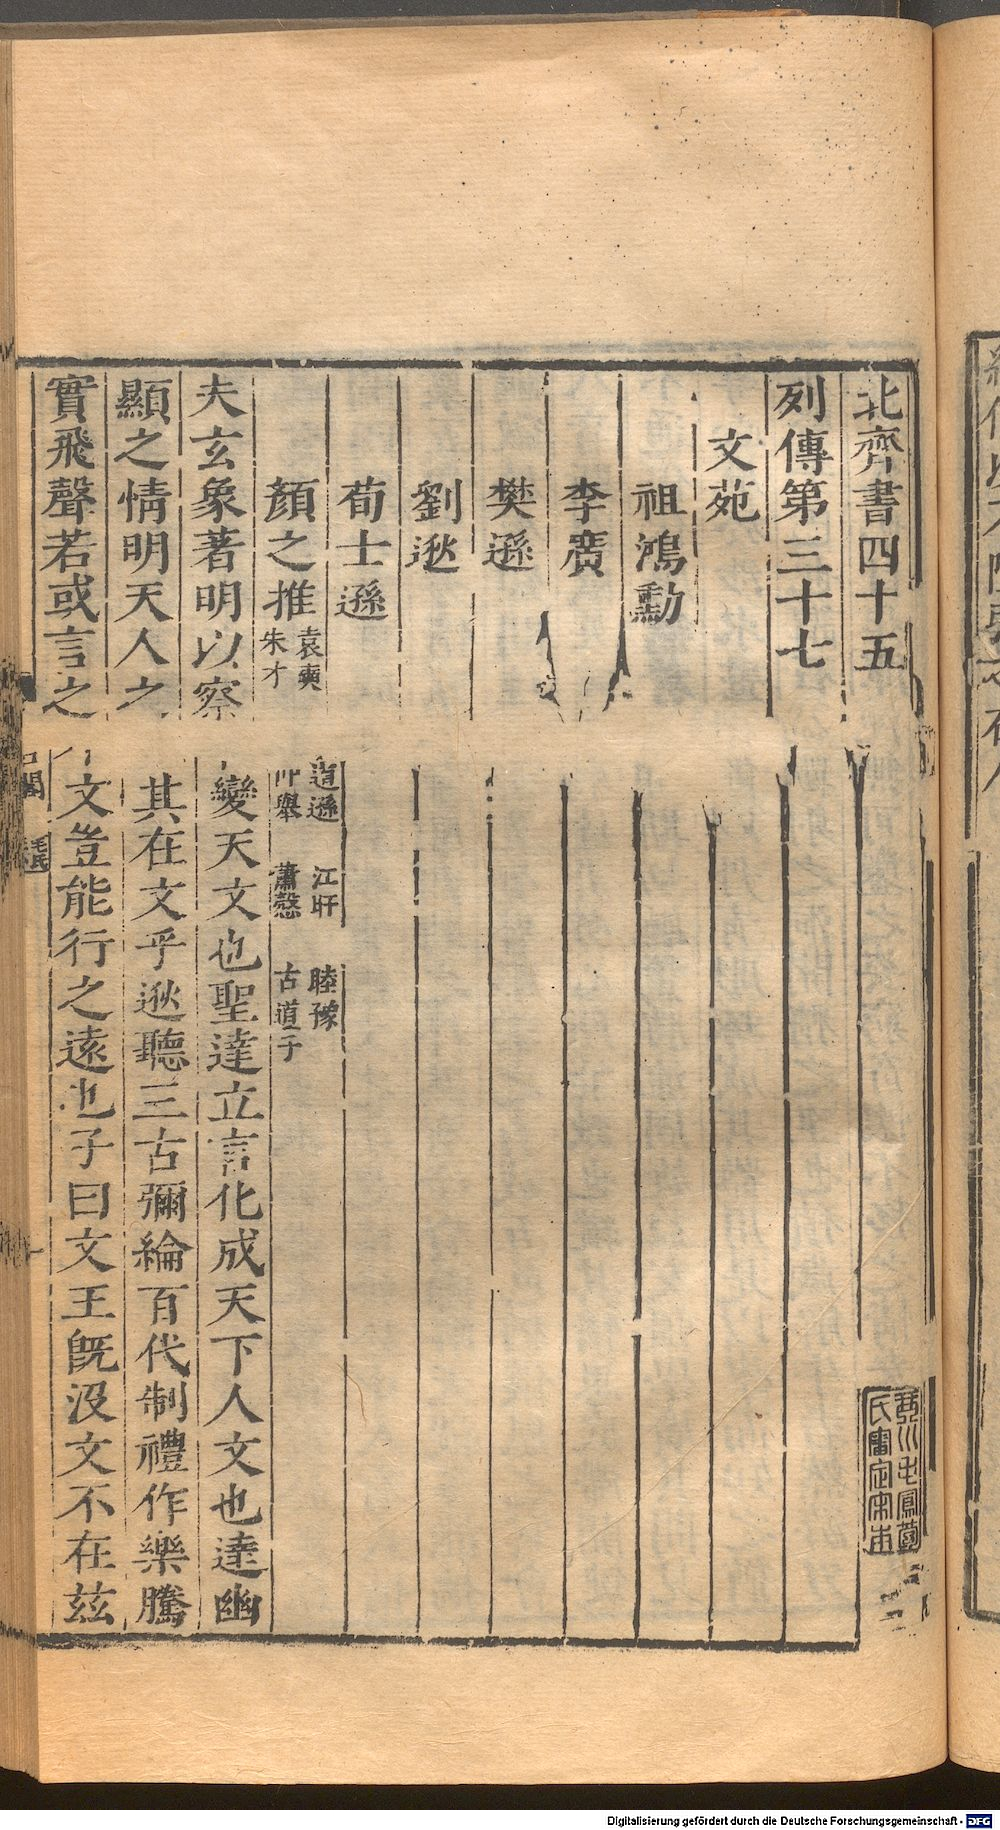 北齊書四十五
琴川毛鳳苞
氏審定宋本
列傳第三十七
文苑
祖鴻勳
李廣
樊遜
劉逖
荀士遜
顏之推 袁奭 道遜 江旰 睦豫
朱才 舉 蕭慤 古道子
夫玄象著明以察變天文也聖達立言化成天下人文也達幽
顯之情明天人之其在文乎逖聽三古彌綸百代制禮作樂騰
實飛聲若或言之文豈能行之遠也子曰文王旣沒文不在茲
閣 毛氏
Digitalisierung gefördert durch die Deutsche Forschungsgemeinschaft - DFG